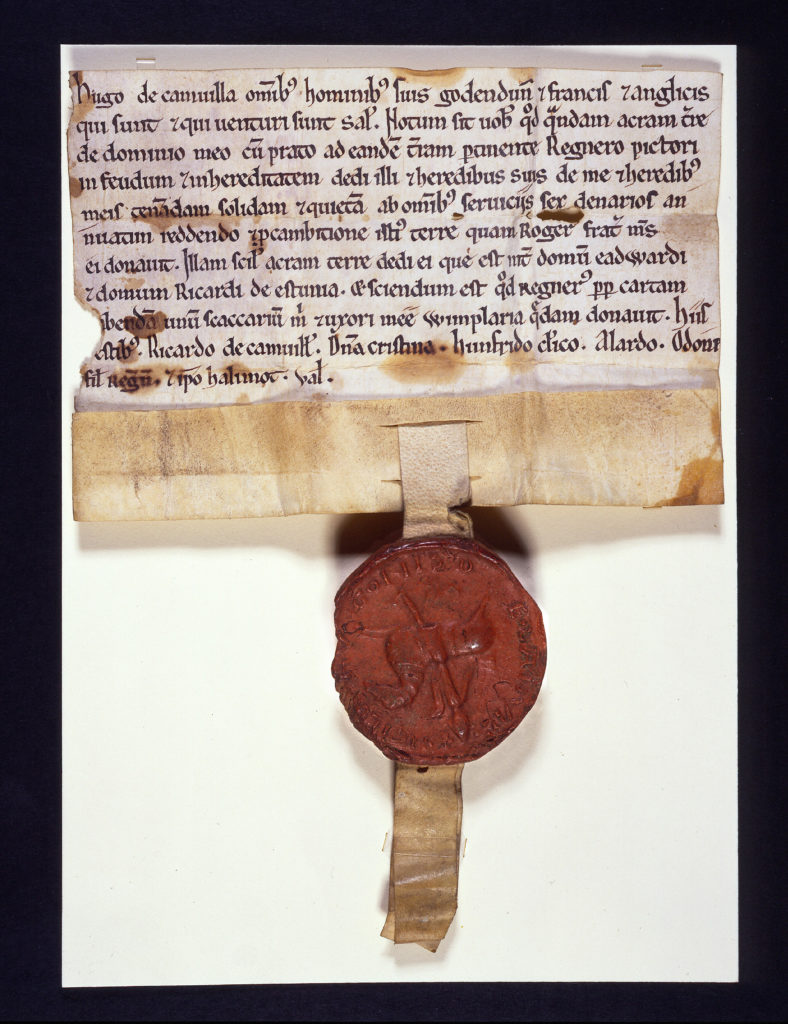 hugo de camuilla omib⁹ hominib⁹ suis godendun̄ ⁊ francis ⁊ anglicis
qui sunt ⁊ qui uenturi sunt sal̄. Notum sit uob̄ qd̄ q̄ndam acram t̄re
de dominio meo cū prato ad eandē t̄ram ꝑtinente Regnero pictori
in feudum ⁊ in hereditatem dedi illi ⁊ heredibus suis de me ⁊ heredib⁹
meis tenēdam solidam ⁊ quietā ab omib⁹ seruiciis sex denarios an
nuatim reddendo ⁊ ꝑ cambitione isti⁹ terre quam Roger⁹ frat̄ m̄s
ei donauit. Illam scil̄ acram terre dedi ei que est int̄ domū eadwardi
⁊ domum Ricardi de estunia. & sciendum est qd̄ Regner⁹ ꝓp̄ cartam
unū scaccariū m̄ ⁊ uxori mee wimplaria q̄dam donauit. hiis
estib⁹. Ricardo de camuill̄. Dn̄a cristina. hunfrido cl̄ico. Alardo. Odone
fil̄ regn̄. ⁊ ip̄o halimot. ual̄.